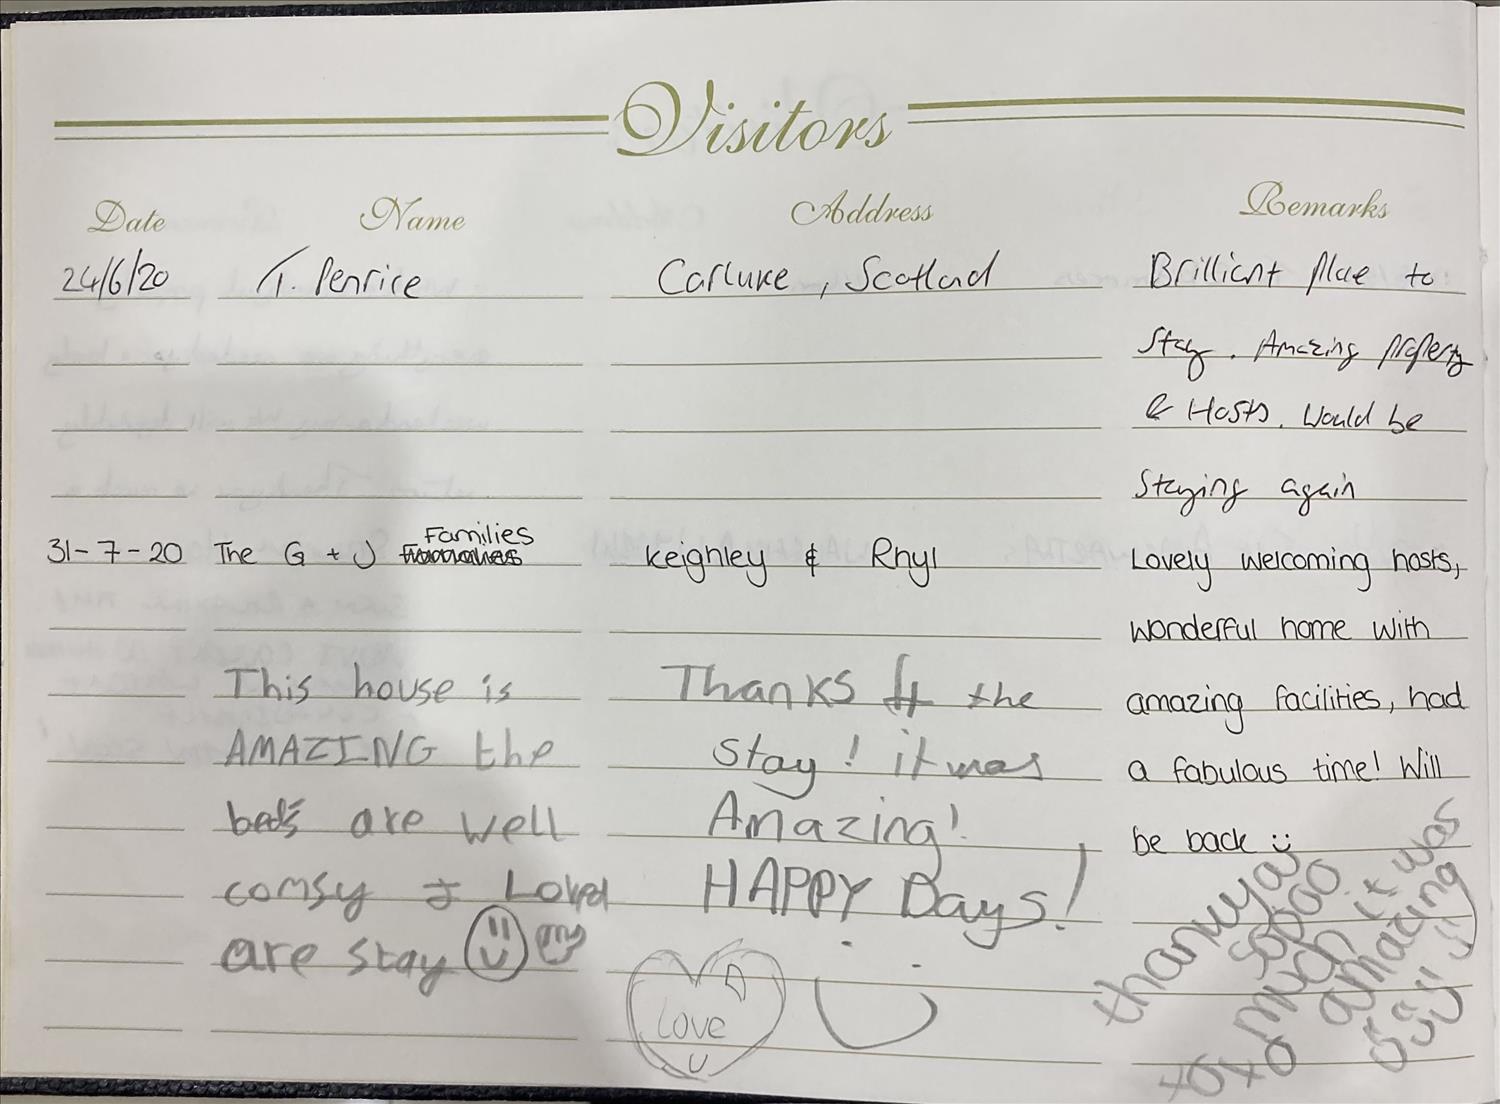 Visitors
Date Name Address Remarks
24/6/20 T. Penrice Carluke, Scotland Brilliant place to
Stay. Amazing property
& Hosts. Would be
Staying again
31-7-20 The G + J Families Keighley & Rhyl Lovely welcoming hosts,
wonderful home with
amazing facilities, had
a fabulous time! Will
be back
This house is
AMAZING the
beds are well
comsy I Loved
are stay
Thanks for the
stay! it was
Amazing!
HAPPY Days!
Love
U
thankyou
soooo
much it was
amazing
xoxo